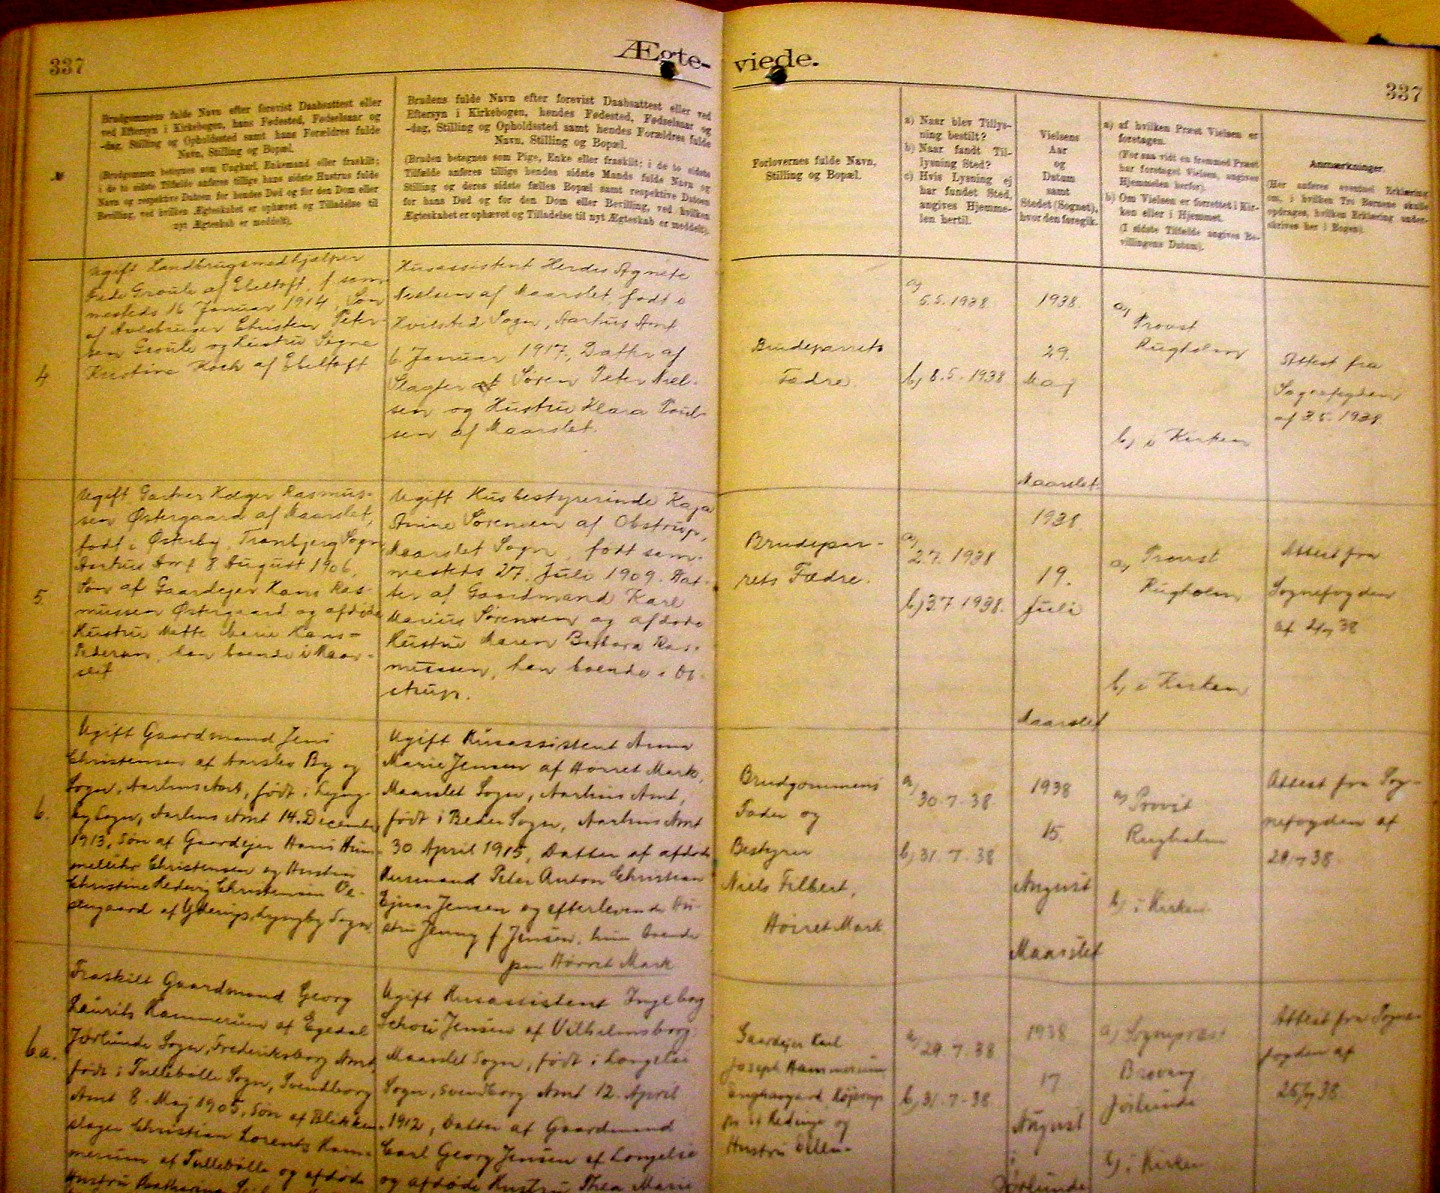 337
Ægte-
viede.
337
Brudgommens fulde Navn efter forevist Daabsattest eller
ved Eftersyn i Kirkebogen, hans Fødested, Fødselsaar og
-dag, Stilling og Opholdssted samt hans Forældres fulde
Navn, Stilling og Bopæl.
(Brudgommen betegnes som Ungkarl, Enkemand eller fraskilt;
i de to sidste Tilfælde anføres tillige hans sidste Hustrus fulde
Navn og respektive Datoen for hendes Død og for den Dom eller
Bevilling, ved hvilken Ægteskabet er ophævet og Tilladelse til
nyt Ægteskab er meddelt).
Brudens fulde Navn efter forevist Daabsattest eller ved
Eftersyn i Kirkebogen, hendes Fødested, Fødselsaar og
-dag, Stilling og Opholdssted samt hendes Forældres fulde
Navn, Stilling og Bopæl.
(Bruden betegnes som Pige, Enke eller fraskilt; i de to sidste
Tilfælde anføres tillige hendes sidste Mands fulde Navn og
Stilling og deres sidste fælles Bopæl samt respektive Datoen
for hans Død og for den Dom eller Bevilling, ved hvilken
Ægteskabet er ophævet og Tilladelse til nyt Ægteskab er meddelt).
Forlovernes fulde Navn,
Stilling og Bopæl.
a) Naar blev Tillys-
ning bestilt?
b) Naar fandt Til-
lysning Sted?
c) Hvis Lysning ej
har fundet Sted,
angives Hjemme-
len hertil.
Vielsens
Aar
og
Datum
samt
Stedet (Sognet),
hvor den foregik.
a) af hvilken Præst Vielsen er
foretagen.
(For saa vidt en fremmed Præst
har foretaget Vielsen, angives
Hjemmelen herfor).
b) Om Vielsen er forrettet i Kir-
ken eller i Hjemmet.
(I sidste Tilfælde angives Be-
villingens Datum).
Anmærkninger.
(Her anføres eventuel Erklæring
om, i hvilken Tro Børnene skulle
opdrages, hvilken Erklæring under-
skrives her i Bogen).
4
Ugift Landbrugsmedhjælper
Groule af Ebeltoft, f. sam-
mesteds 16 Januar 1914, Søn
af Avlsbruger Christen Peter-
sen Groule og Hustru Signe
Kristine Koch af Ebeltoft
Husassistent Herdis Agnete
Nielsen af Maarslet, født i
Hvilsted Sogn, Aarhus Amt
6 Januar 1917, Datter af
Slagter Søren Peter Niel-
sen og Hustru Klara Poul-
sen af Maarslet.
Brudeparrets
Fædre.
a) 5.5.1938.
b) 8.5.1938
1938.
29.
Maj
Maarslet.
a) Provst
Rugholm
b) i Kirken
Attest fra
Sognefogden
af 3.5.1938
5.
Ugift Gartner Holger Rasmus-
sen Østergaard af Maarslet,
født i Østerby, Tranbjerg Sogn,
Aarhus Amt 8 August 1906,
Søn af Gaardejer Hans Ras-
mussen Østergaard og afdøde
Hustru Mette Marie Hans-
Pedersen, han boende i Maar-
slet
Ugift Husbestyrerinde Kaja
Anine Sørensen af Obstrup,
Maarslet Sogn, født sam-
mesteds 27. Juli 1909. Dat-
ter af Gaardmand Karl
Marius Sørensen og afdøde
Hustru Maren Barbara Ras-
mussen, han boende i Ob-
strup.
Brudepar-
rets Fædre.
a) 2.7.1938
b) 3.7.1938.
1938
19.
Juli
Maarslet
a) Provst
Rugholm
b) i Kirken
Attest fra
Sognefogden
af
6.
Ugift Gaardmand Jens
Christensen af Aarslev By og
Sogn, Aarhus Amt, født i Lyng-
by Sogn, Aarhus Amt 14. December
1913, Søn af Gaardejer Hans Him-
melihr Christensen og Hustru
Christine Hedvig Christensen
af Yderup, Lyngby Sogn
Ugift Husassistent Anna
Marie Jensen af Hørret Mark,
Maarslet Sogn, Aarhus Amt,
født i Beder Sogn, Aarhus Amt
30 April 1915, Datter af afdøde
Husmand Peter Anton Christian
Ejnar Jensen og efterlevende Hu-
stru Jenny f. Jensen, hun boende
paa Hørret Mark
Brudgommens
Fader og
Bestyrer
Niels Filbert,
Hørret Mark
a) 30-7-38.
b) 31.7-38
1938
15.
August
Maarslet
a) Provst
Rugholm
b) i Kirken
Attest fra Sog-
nefogden af
38.
6.a.
Fraskilt Gaardmand Georg
Laurits Hammerum af Egedal
Jørlunde Sogn, Frederiksborg Amt,
født i Tullebølle Sogn, Svendborg
Amt 8. Maj 1905, Søn af Blikken-
slager Christian Lorents Ham-
merum af Tullebølle og afdøde
Hustru
Ugift Husassistent Ingeborg
Schou Jensen af Vilhelmsborg,
Maarslet Sogn, født i Longelse
Sogn, Svendborg Amt 12. April
1912, Datter af Gaardmand
Carl Georg Jensen af Longelse
og afdøde Hustru Thea Marie
Gaardejer Karl
Joseph Hammerum,
og
Hustru Ellen-
a) 29.7.38
b) 31.7-38
1938
17
August
i
Jørlunde
a) Sognepræst
Jørlunde
b) i Kirken
Attest fra Sogne-
fogden af
38.